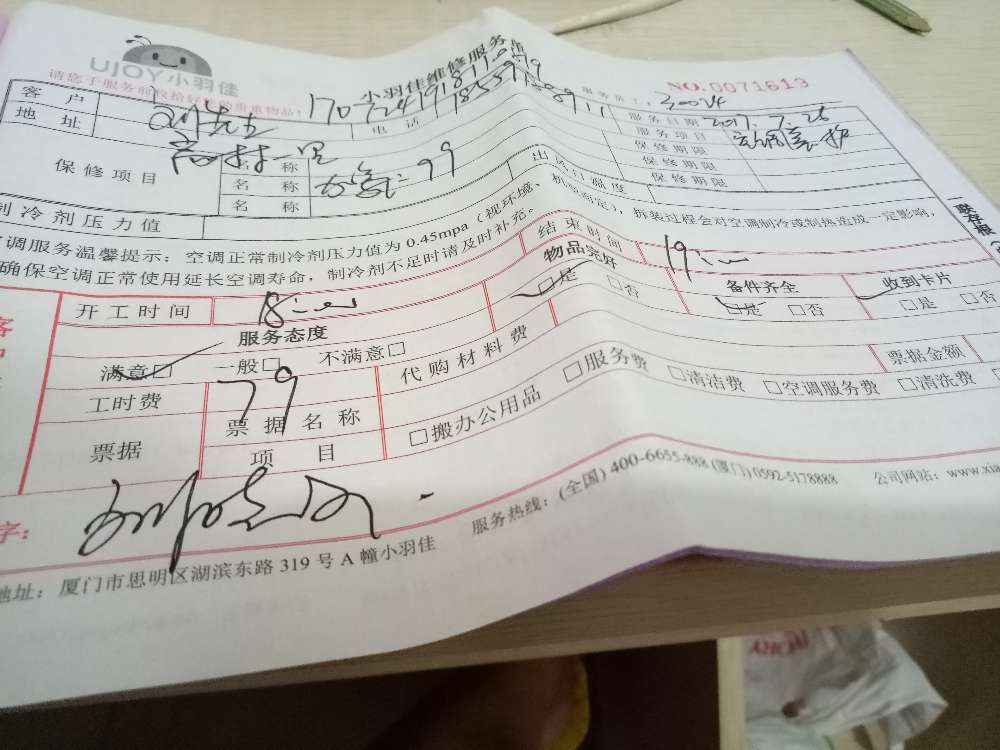 UJOY小羽佳
小羽佳维修服务单
请您于服务前收拾好您的贵重物品!
NO.0071613
客户 刘先生 电话
服务员工: 服务日期 2017.7.26
地址 高林一里
服务项目
保修项目 名称 保修期限
名称 保修期限
名称 保修期限
制冷剂压力值 出风口温度
空调服务温馨提示:空调正常制冷剂压力值为0.45mpa(视环境、机型而定),拆装过程会对空调制冷或制热造成一定影响,
确保空调正常使用延长空调寿命,制冷剂不足时请及时补充。
开工时间 18: 结束时间 19:
服务态度 物品完好 备件齐全 收到卡片
满意□ 一般□ 不满意□ □是 □否 □是 □否 □是 □否
工时费 79 代购材料费 票据金额
票据 票据名称 □服务费 □清洁费 □空调服务费 □清洗费
项目 □搬办公用品
字:
服务热线:(全国)400-6655-888(厦门)0592-5178888 公司网站:www.xia
地址:厦门市思明区湖滨东路319号A幢小羽佳